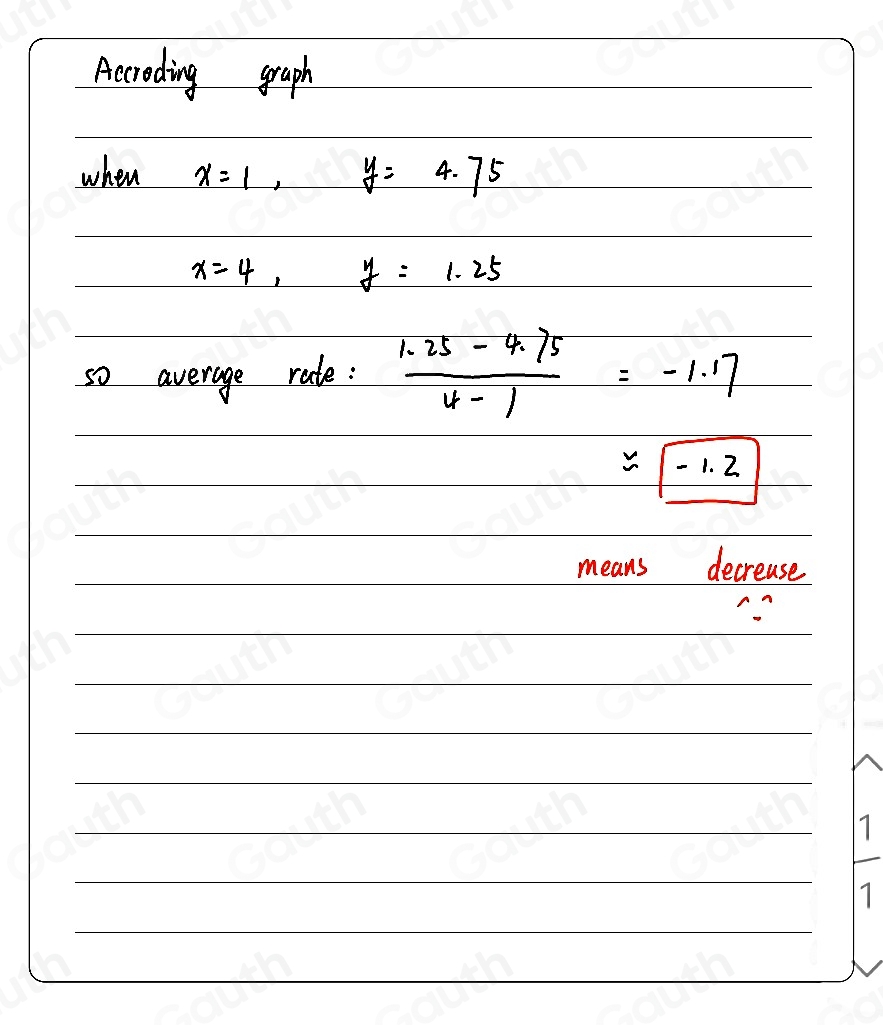 Accroding graph
when x = 1 , y = 4.75
x = 4 , y = 1.25
so average rate : \frac{1.25 - 4.75}{4 - 1} = -1.17
≈ -1.2
means decrease
1
1
Gauth